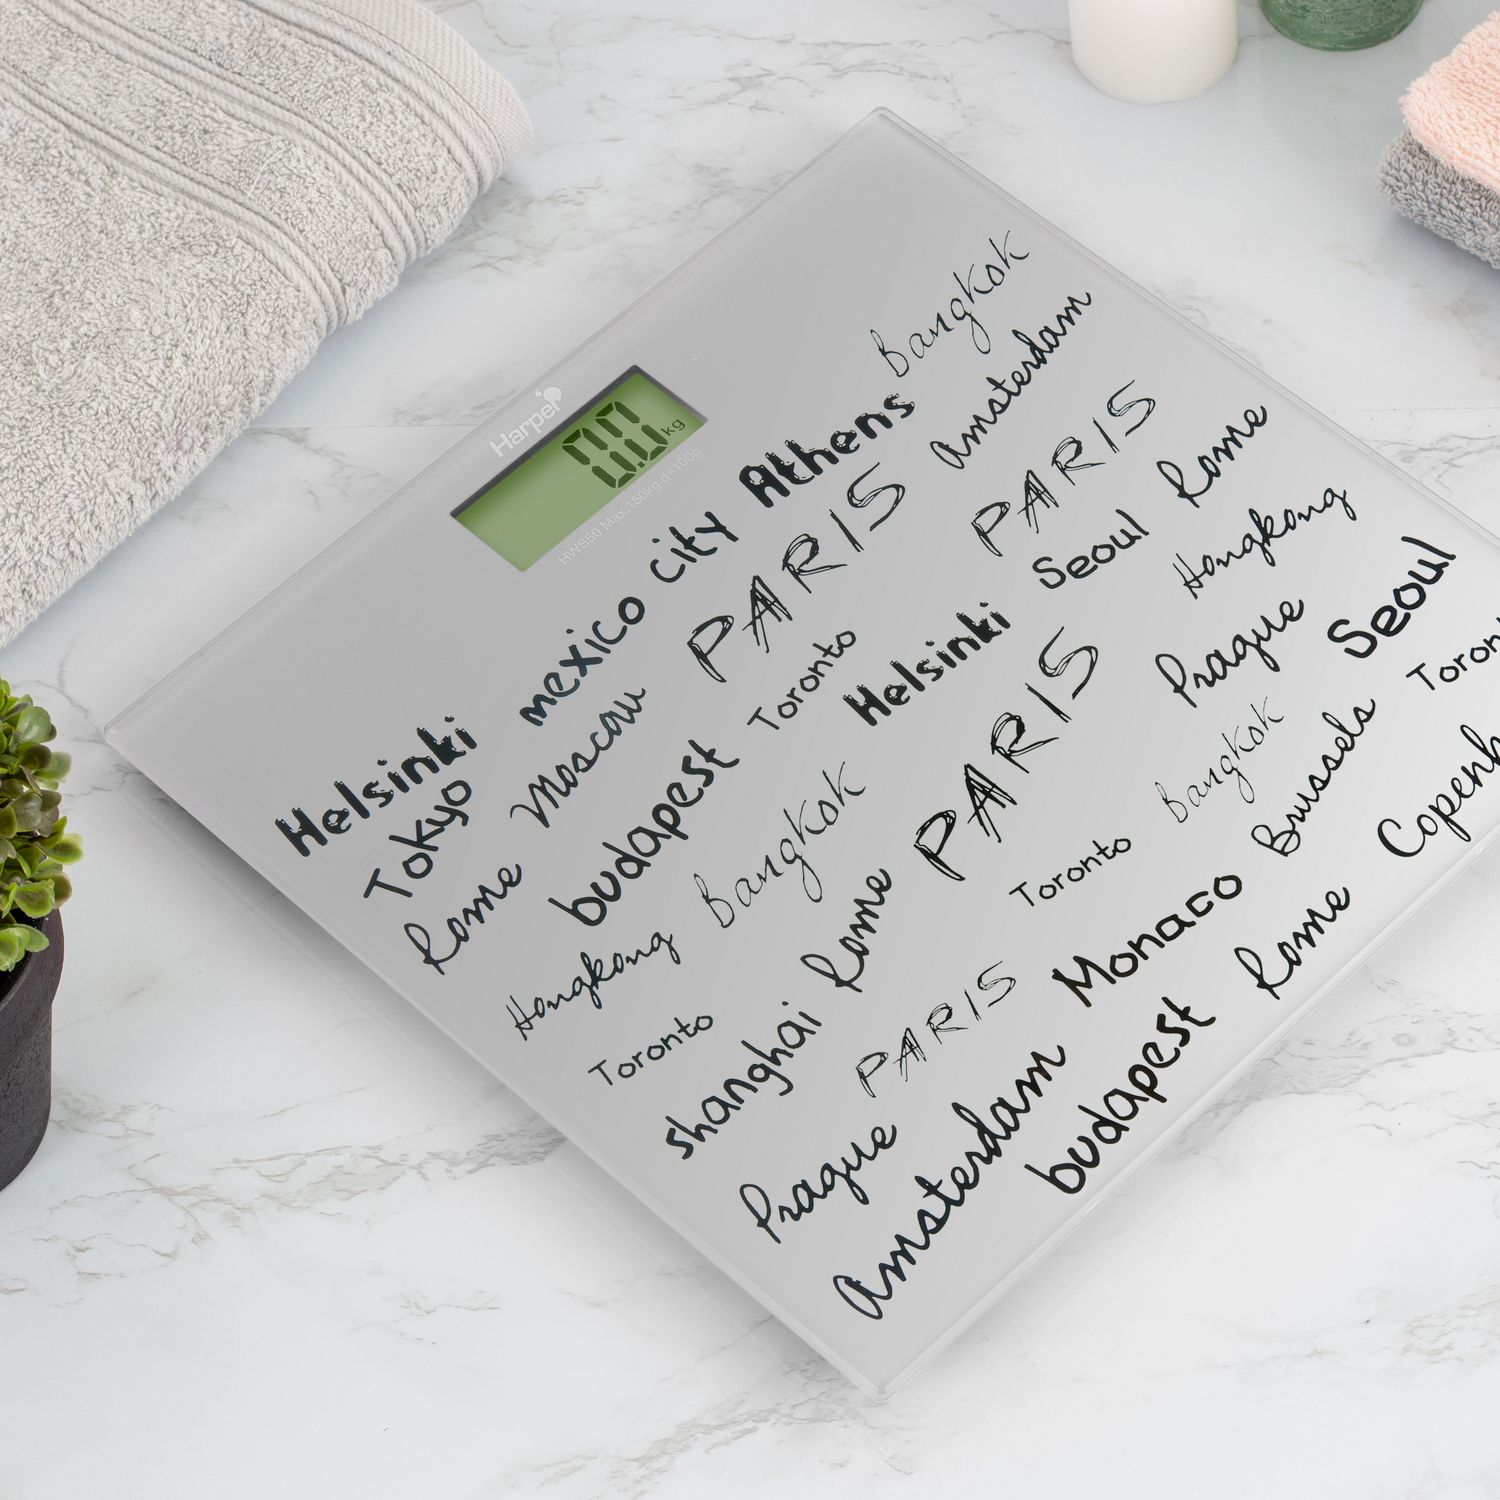 Harper
0.0 kg
HWS50 Max.150kg d=100g
Bangkok
Amsterdam
Athens
mexico city
PARIS
PARIS
Rome
Helsinki
Tokyo
Moscow
Toronto
Helsinki
Seoul
Hongkong
Rome
budapest
Bangkok
PARIS
Prague
Seoul
Hongkong
Toronto
Rome
Toronto
Bangkok
Brussels
Toron
shanghai
PARIS
Monaco
Rome
Copenh
Prague
Amsterdam
budapest